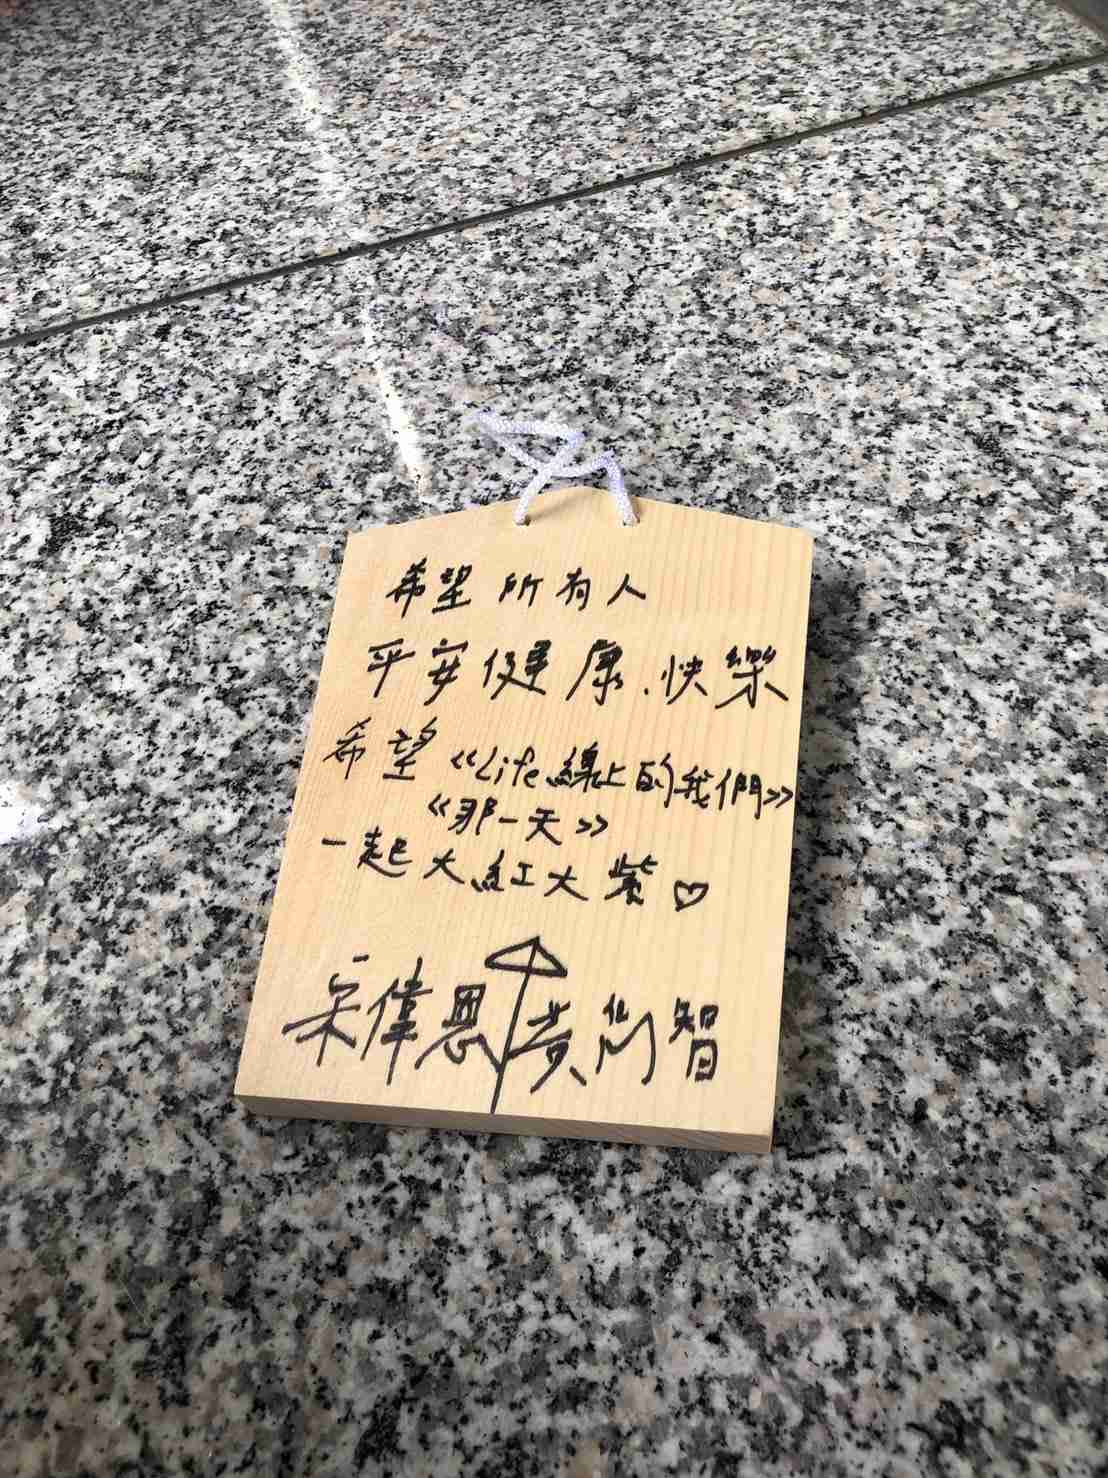 希望所有人
平安健康、快樂
希望《Life線上的我們》
《那一天》
一起大紅大紫♡
宋偉恩 黃尚智